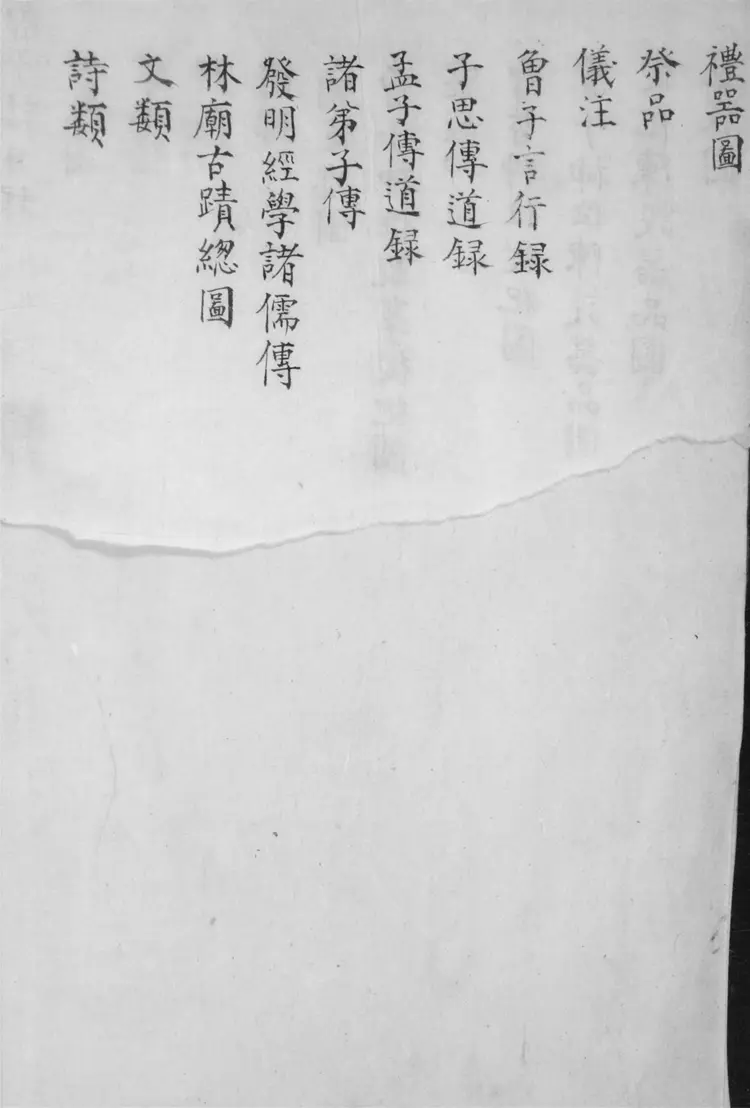 禮器圖
祭品
儀注
曾子言行録
子思傳道録
孟子傳道録
諸弟子傳
發明經學諸儒傳
林廟古蹟緫圖
文類
詩類